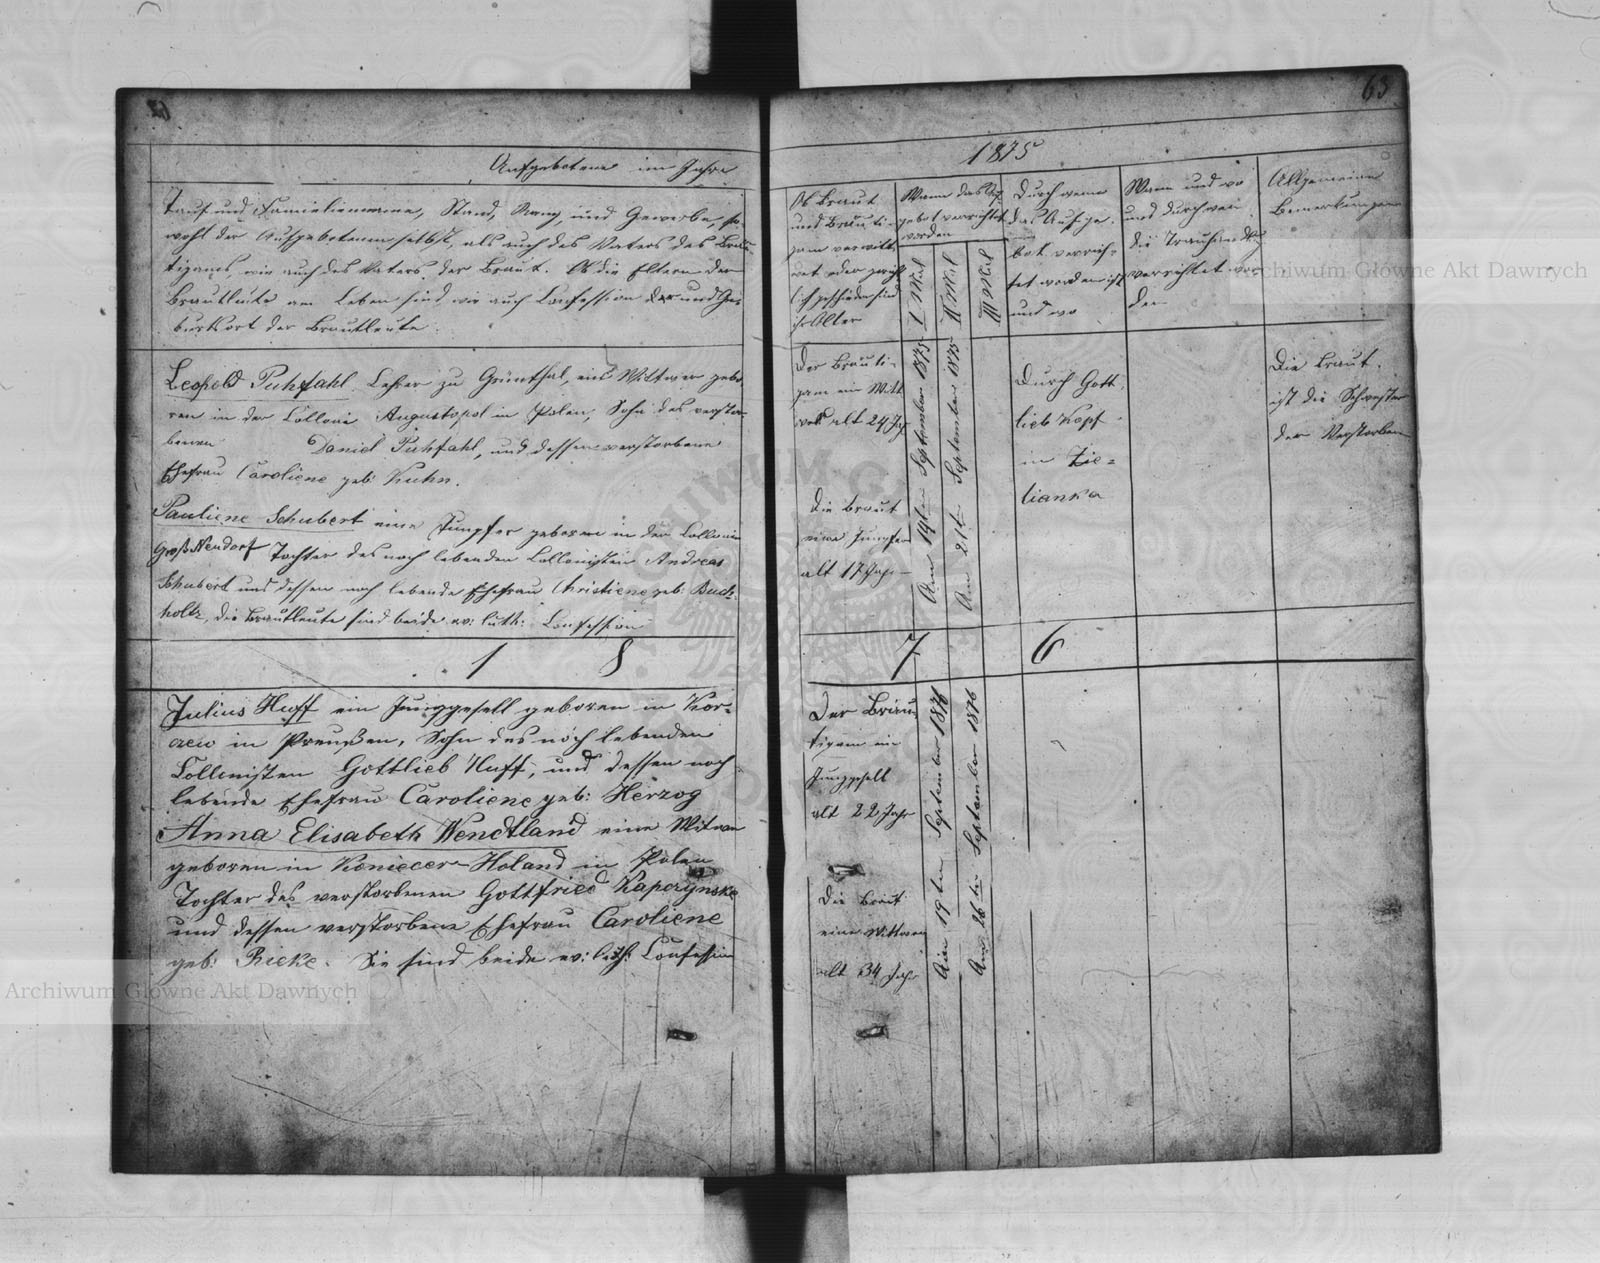 62
Aufgebotene im Jahre
Tauf und Familienname, Stand, Rang, und Gewerbe, so-
wohl der Aufgebotenen selbst, als auch des Vaters des Bräu-
tigams, wie auch des Vaters der Braut. Ob die Eltern der
Brautleute am Leben sind wie auch Confession der und Ge-
burtsort der Brautleute.
Leopold Puhfahl Lehrer zu Grünthal, ein Wittwer gebo-
ren in der Collonie Augustopol in Polen, Sohn des verstor-
benen Daniel Puhfahl, und dessen verstorbene
Ehefrau Caroliene geb: Kuhn.
Pauliene Schubert eine Jungfer geboren in der Collonie
Groß Neudorf Tochter des noch lebenden Collonisten Andreas
Schubert und dessen noch lebende Ehefrau Christiene geb: Buch-
holtz, die Brautleute sind beide ev: luth: Confession
1 8
Julius Huff ein Junggesell geboren in
in Preußen, Sohn des noch lebenden
Collonisten Gottlieb Huff, und dessen noch
lebende Ehefrau Caroliene geb: Herzog
Anna Elisabeth Wendtland eine Witwe
geboren in Holand in Polen
Tochter des verstorbenen Gottfried Kapczynske
und dessen verstorbene Ehefrau Caroliene
geb: Rieke. Sie sind beide ev: luth: Confession
63
1875
Ob Braut
und Bräuti-
gam verwitt-
wet oder gericht-
lich geschieden sind
ihr Alter
Wann das Auf-
gebot verrichtet
worden
I Mal
II Mal
III Mal
Durch wenn
das Aufge-
bot verrich-
tet worden ist
und wo
Wann und wo
und durch wen
die Trauhandlg
verrichtet wor-
den
Allgemeine
Bemerkungen
Der Bräuti-
gam ein Witt
wer alt 24 Jah
Die Braut
eine Jungfer
alt 17 Jahr
Am 14ten September 1875
Am 21ten September 1875
Durch Gott
lieb Kopf
in Zie-
lianka
Die Braut
ist die Schwester
der Verstorben
7 6
Der Bräu-
tigam ein
Junggesell
alt 22 Jahr
Die Braut
eine Wittwe
alt 34 Jahr
Am 19ten September 1876
Am 26ten September 1876
Archiwum Główne Akt Dawnych
Archiwum Główne Akt Dawnych